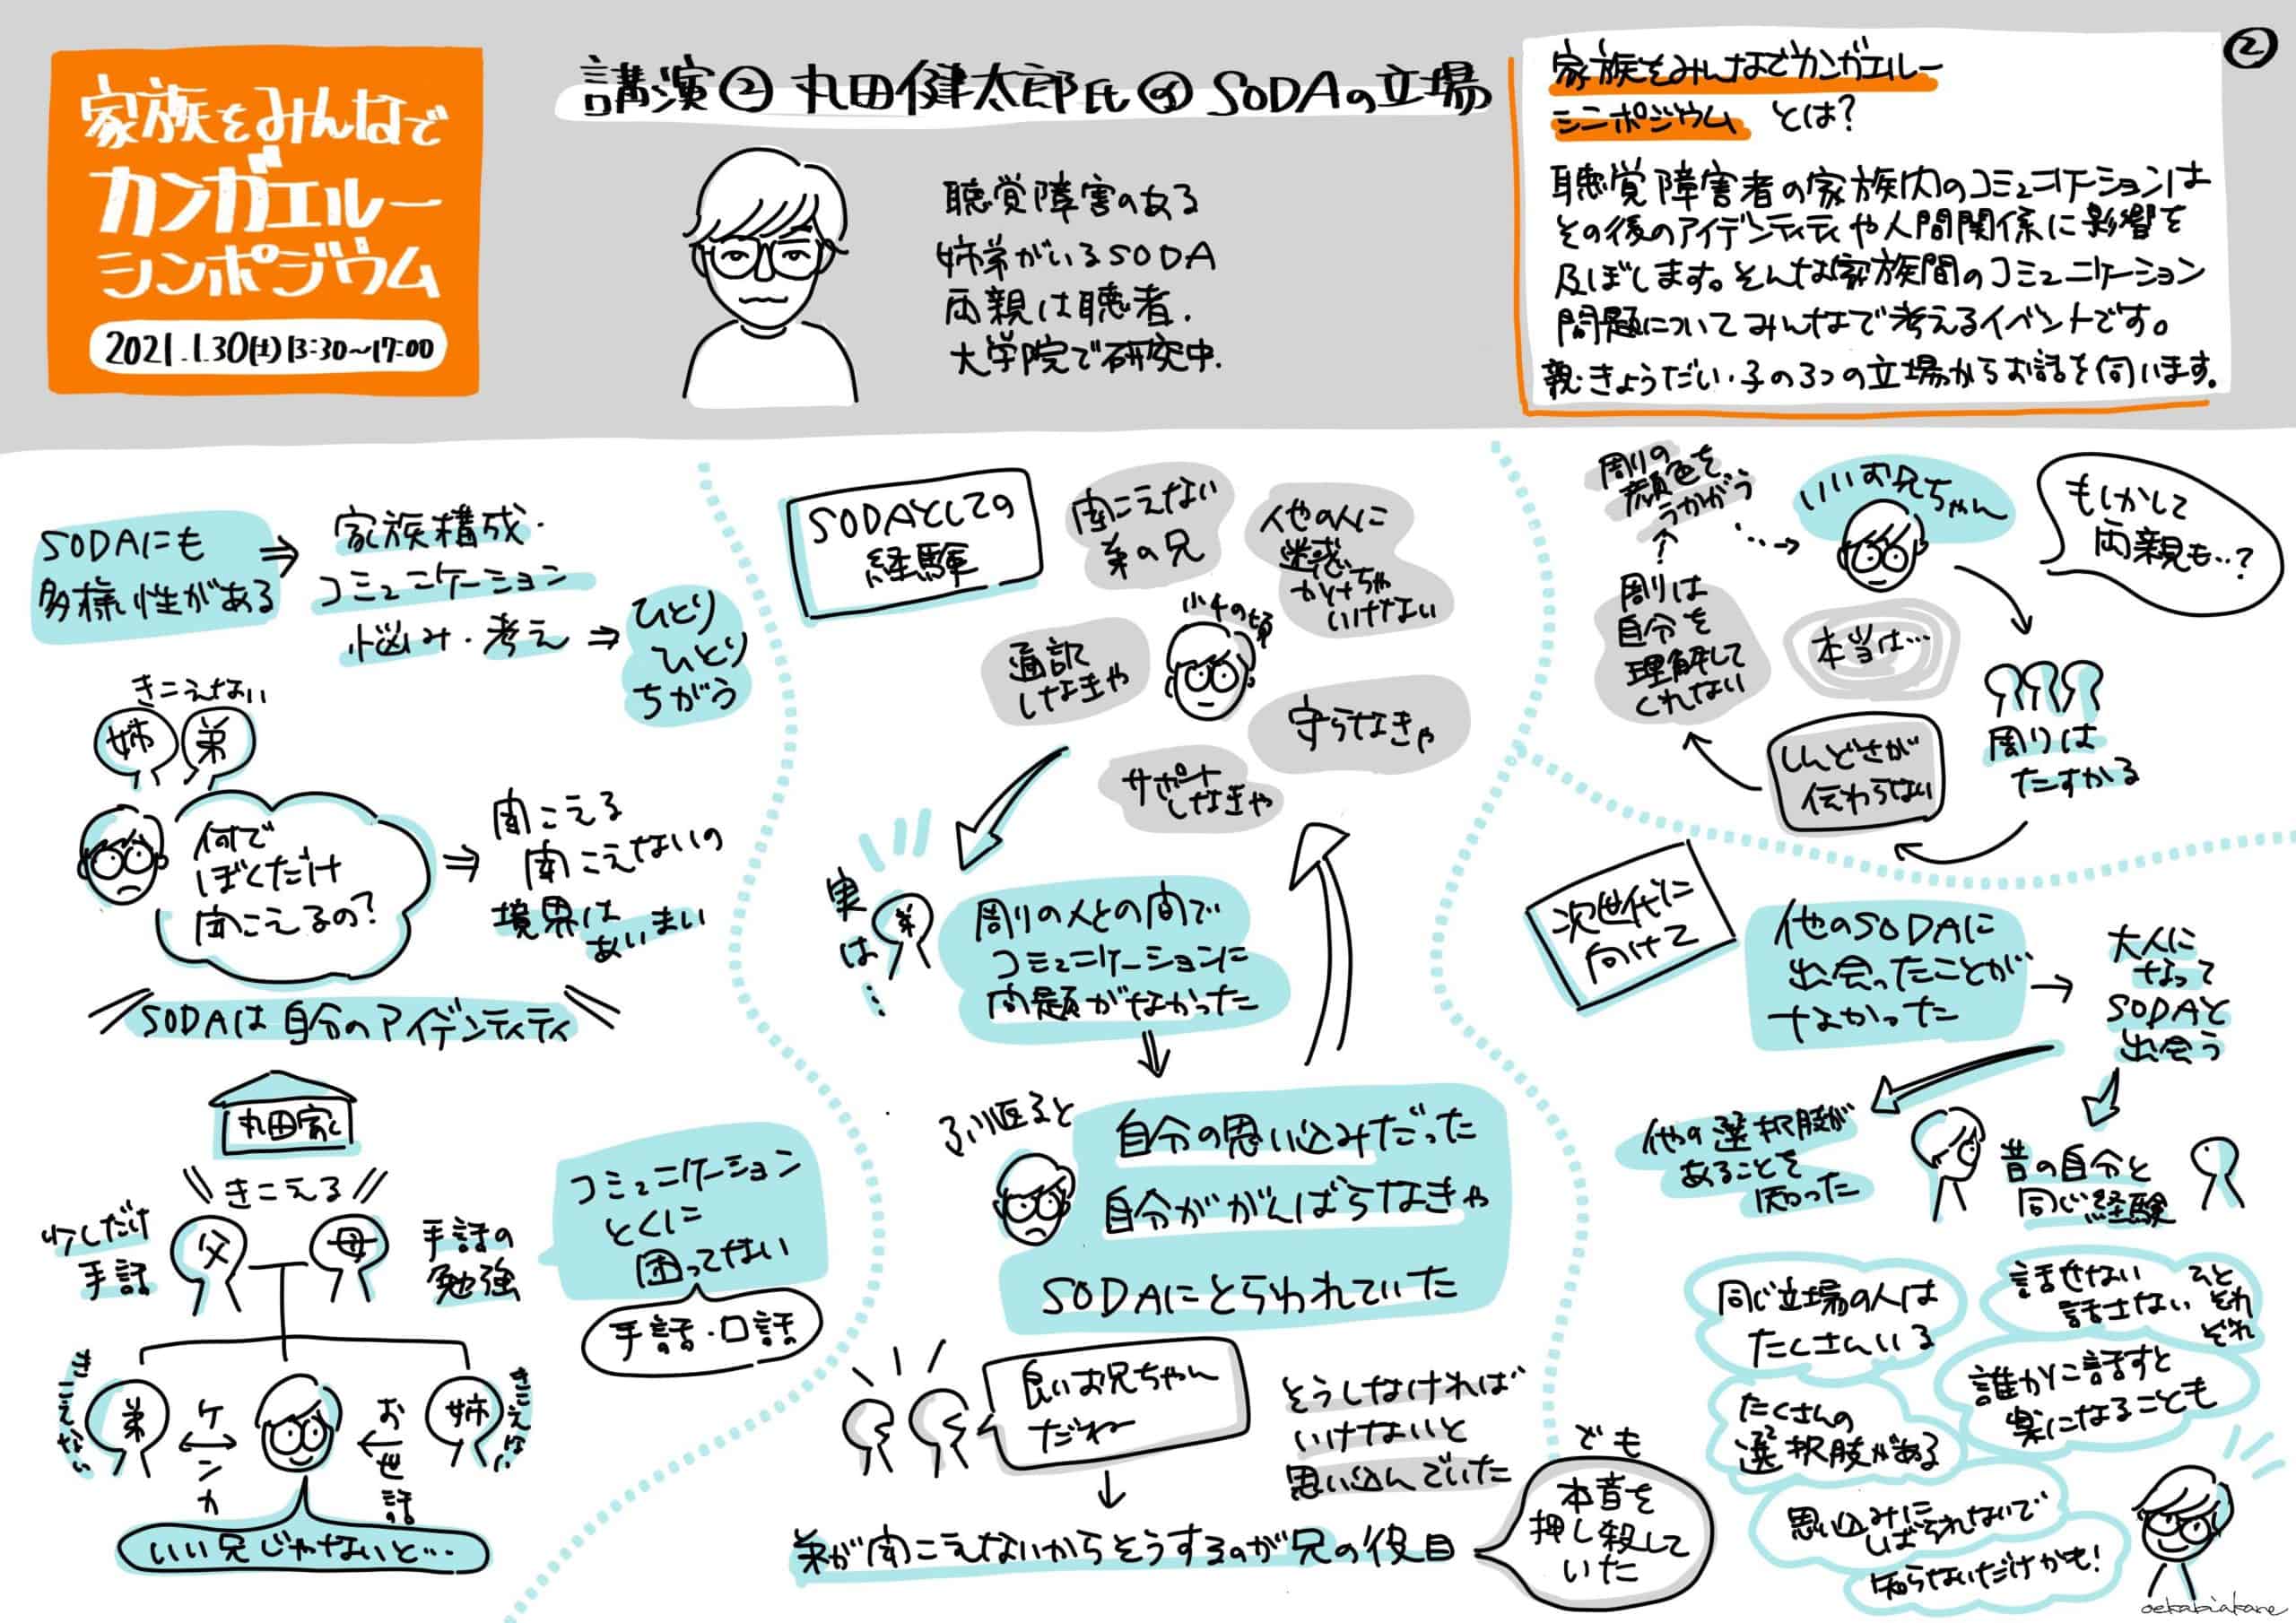 家族をみんなで
カンガエルー
シンポジウム
2021.1.30(土)13:30〜17:00
講演② 丸田健太郎氏の SODAの立場
聴覚障害のある
姉弟がいるSODA
両親は聴者.
大学院で研究中.
②
家族をみんなでカンガエルー
シンポジウム とは?
聴覚障害者の家族内のコミュニケーションは
その後のアイデンティティや人間関係に影響を
及ぼします。そんな家族間のコミュニケーション
問題についてみんなで考えるイベントです。
親・きょうだい・子の3つの立場からお話を伺います。
SODAにも
多様性がある
⇒
家族構成・
コミュニケーション
悩み・考え
⇒
ひとり
ひとり
ちがう
きこえない
姉
弟
何で
ぼくだけ
聞こえるの?
⇒
聞こえる
聞こえないの
境界は
あいまい
SODAは自分のアイデンティティ
丸田家
きこえる
少しだけ
手話
父
母
手話の
勉強
コミュニケーション
とくに
困ってない
手話・口話
きこえない
弟
ケンカ
お世話
姉
きこえない
いい兄じゃないと…
SODAとしての
経験
聞こえない
弟の兄
他の人に
迷惑
かけちゃ
いけない
小4の頃
通訳
しなきゃ
守らなきゃ
サポート
しなきゃ
実は…
弟
周りの人との間で
コミュニケーションに
問題がなかった
ふり返ると
自分の思い込みだった
自分ががんばらなきゃ
SODAにとらわれていた
良いお兄ちゃん
だね〜
そうしなければ
いけないと
思い込んでいた
弟が聞こえないからそうするのが兄の役目
でも
本音を
押し殺して
いた
周りの
顔色を
うかがう
いいお兄ちゃん
もしかして
両親も…?
周りは
自分を
理解して
くれない
本当は…
しんどさが
伝わらない
周りは
たすかる
次世代に
向けて
他のSODAに
出会ったことが
なかった
→
大人に
なって
SODAと
出会う
他の選択肢が
あることを
知った
昔の自分と
同じ経験
同じ立場の人は
たくさんいる
話せない
話さない
ひと
それ
ぞれ
たくさんの
選択肢がある
誰かに話すと
楽になることも
思い込みに
しばられないで
知らないだけかも!
oekakiakane